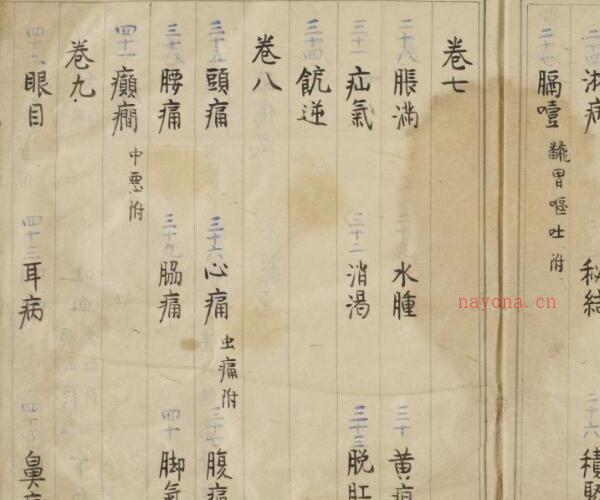 二十四 淋病 秘結 二十六 積聚
二十七 膈噎 翻胃嘔吐附
卷七
二十八 脹滿 水腫 三十 黃疸
三十一 疝氣 三十二 消渴 三十三 脫肛
三十四 逆
卷八
三十五 頭痛 三十六 心痛 虫痛附 三十七 腹痛
三十八 腰痛 三十九 脇痛 四十 脚氣
四十一 癲癇 中悪附
卷九
四十二 眼目 四十三 耳病 四十四 鼻
nayona.cn